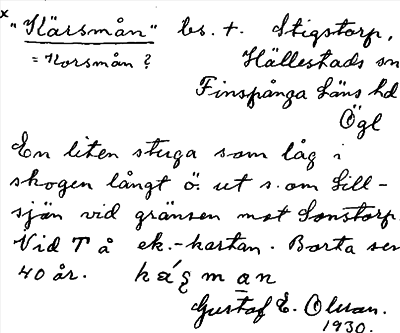 x "Kärsmån" bs. t. Stigstorp,
= Korsmån? Hällestads sn
Finspånga Läns hd
Ögl
En liten stuga som låg i
skogen långt ö. ut s. om Lill-
sjön vid gränsen mot Sonstorp.
Vid T å ek.-kartan. Borta sen
40 år. man
Gustaf E. Olsson.
1930.